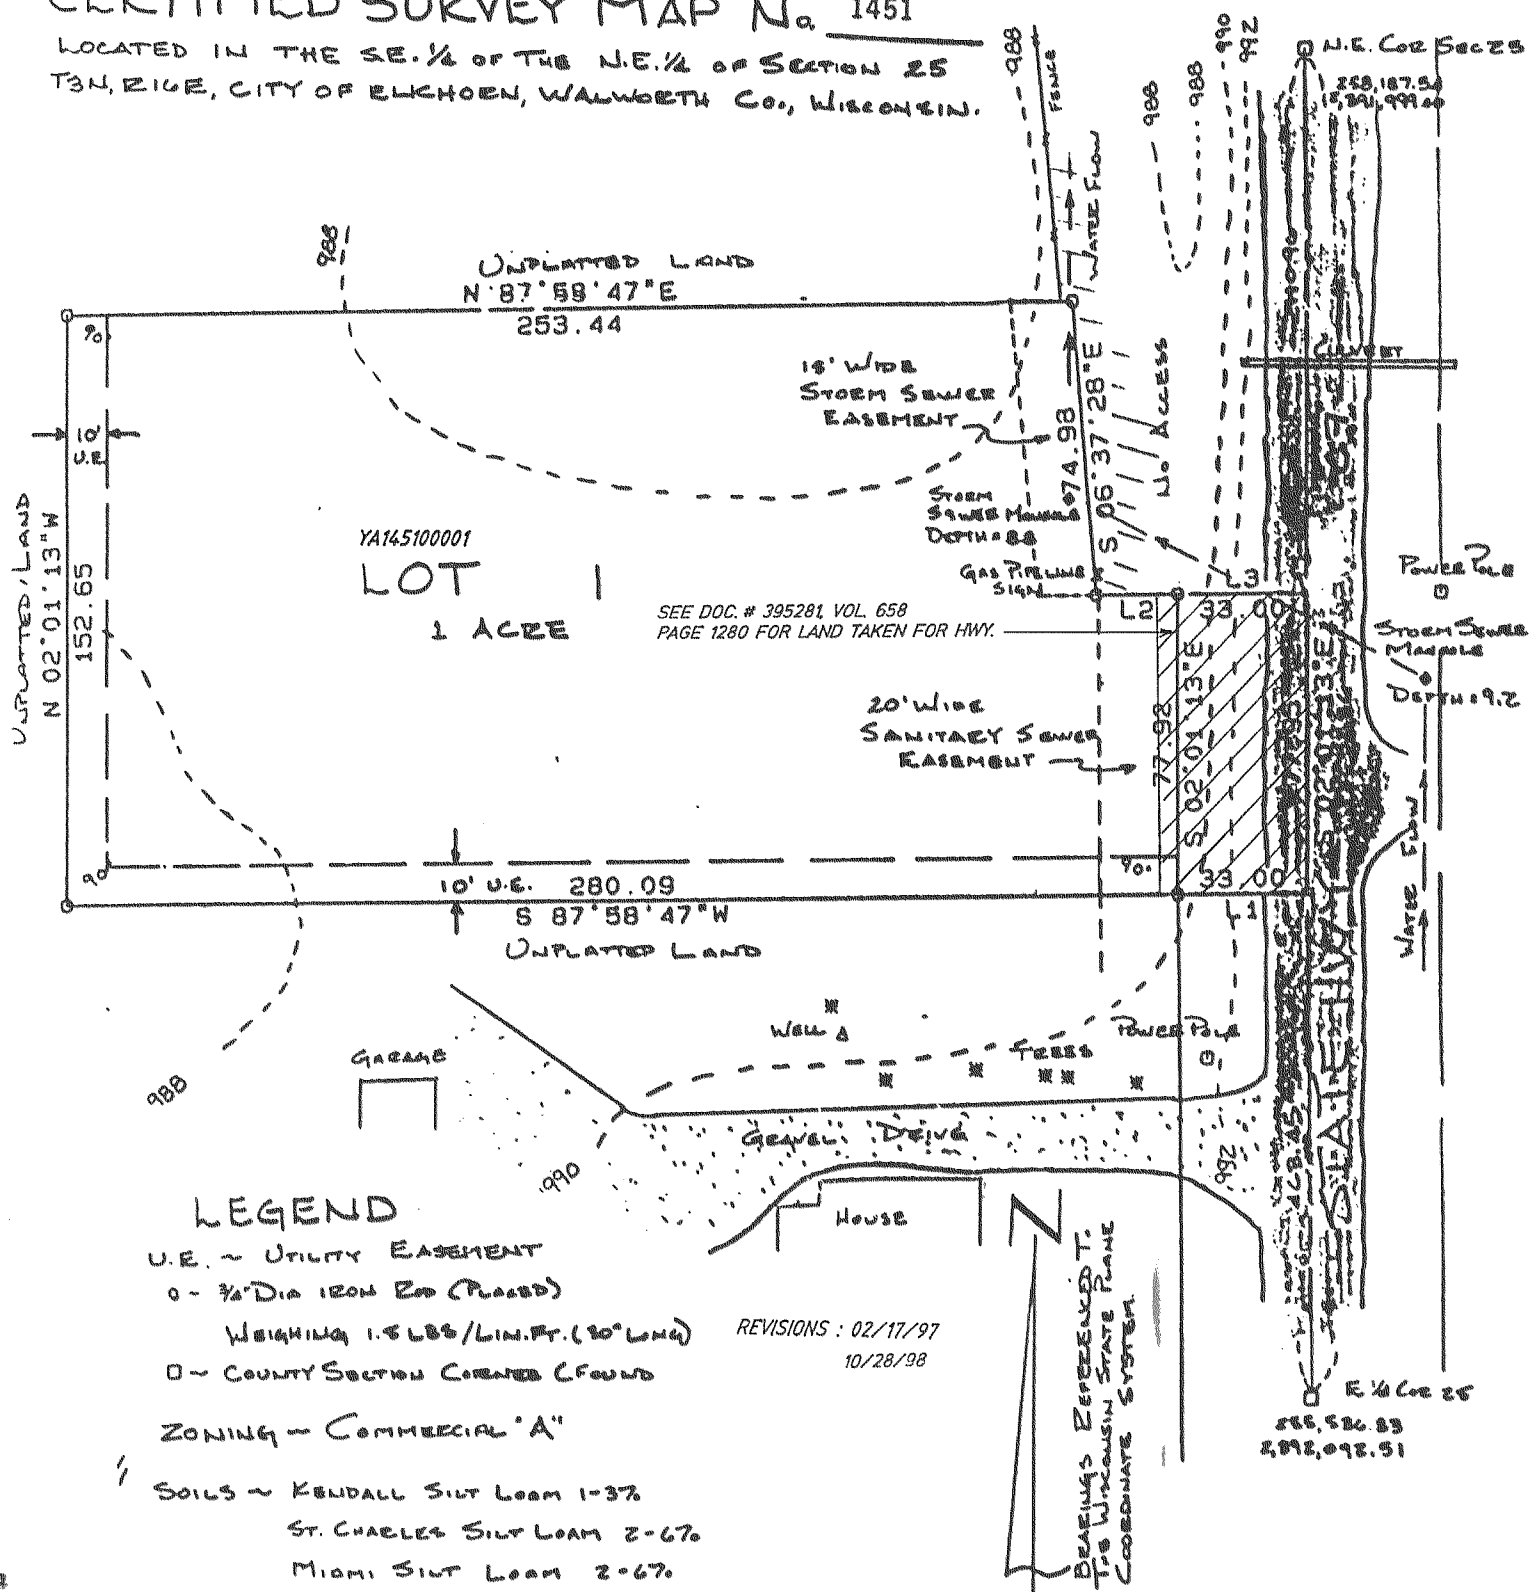 CERTIFIED SURVEY MAP No 1451
LOCATED IN THE S.E. 1/4 OF THE N.E. 1/4 OF SECTION 25
T3N, R16E, CITY OF ELKHORN, WALWORTH CO., WISCONSIN.
988
FENCE
WATER FLOW
988
988
990
992
N.E. COR SEC 25
988
UNPLATTED LAND
N 87°58'47"E
253.44
90
10'
U.E.
UNPLATTED LAND
N 02°01'13"W
152.65
18' WIDE
STORM SEWER
EASEMENT
74.98
S 06°37'28"E
NO ACCESS
CULVERT
STORM
SEWER MANHOLE
DEPTH = 8.8
GAS PIPELINE
SIGN
YA145100001
LOT 1
1 ACRE
SEE DOC. # 395281, VOL. 658
PAGE 1280 FOR LAND TAKEN FOR HWY.
L2
33.00
L3
POWER POLE
STORM SEWER
MANHOLE
DEPTH = 9.2
20' WIDE
SANITARY SEWER
EASEMENT
77.92
S 02°01'13"E
S 02°01'33"E
WATER FLOW
90
90.
33.00
L1
10' U.E. 280.09
S 87°58'47"W
UNPLATTED LAND
STATE HWY
WELL
TREES
POWER POLE
GARAGE
988
GRAVEL DRIVE
990
992
HOUSE
LEGEND
U.E. ~ UTILITY EASEMENT
o - 3/4" DIA IRON ROD (PLACED)
WEIGHING 1.5 LBS/LIN.FT. (30" LONG)
□ ~ COUNTY SECTION CORNER (FOUND
ZONING ~ COMMERCIAL "A"
SOILS ~ KENDALL SILT LOAM 1-3%
ST. CHARLES SILT LOAM 2-6%
MIAMI SILT LOAM 2-6%
REVISIONS : 02/17/97
10/28/98
N
BEARINGS REFERENCED T.
THE WISCONSIN STATE PLANE
COORDINATE SYSTEM.
E 1/4 COR 25
2,392,092.51